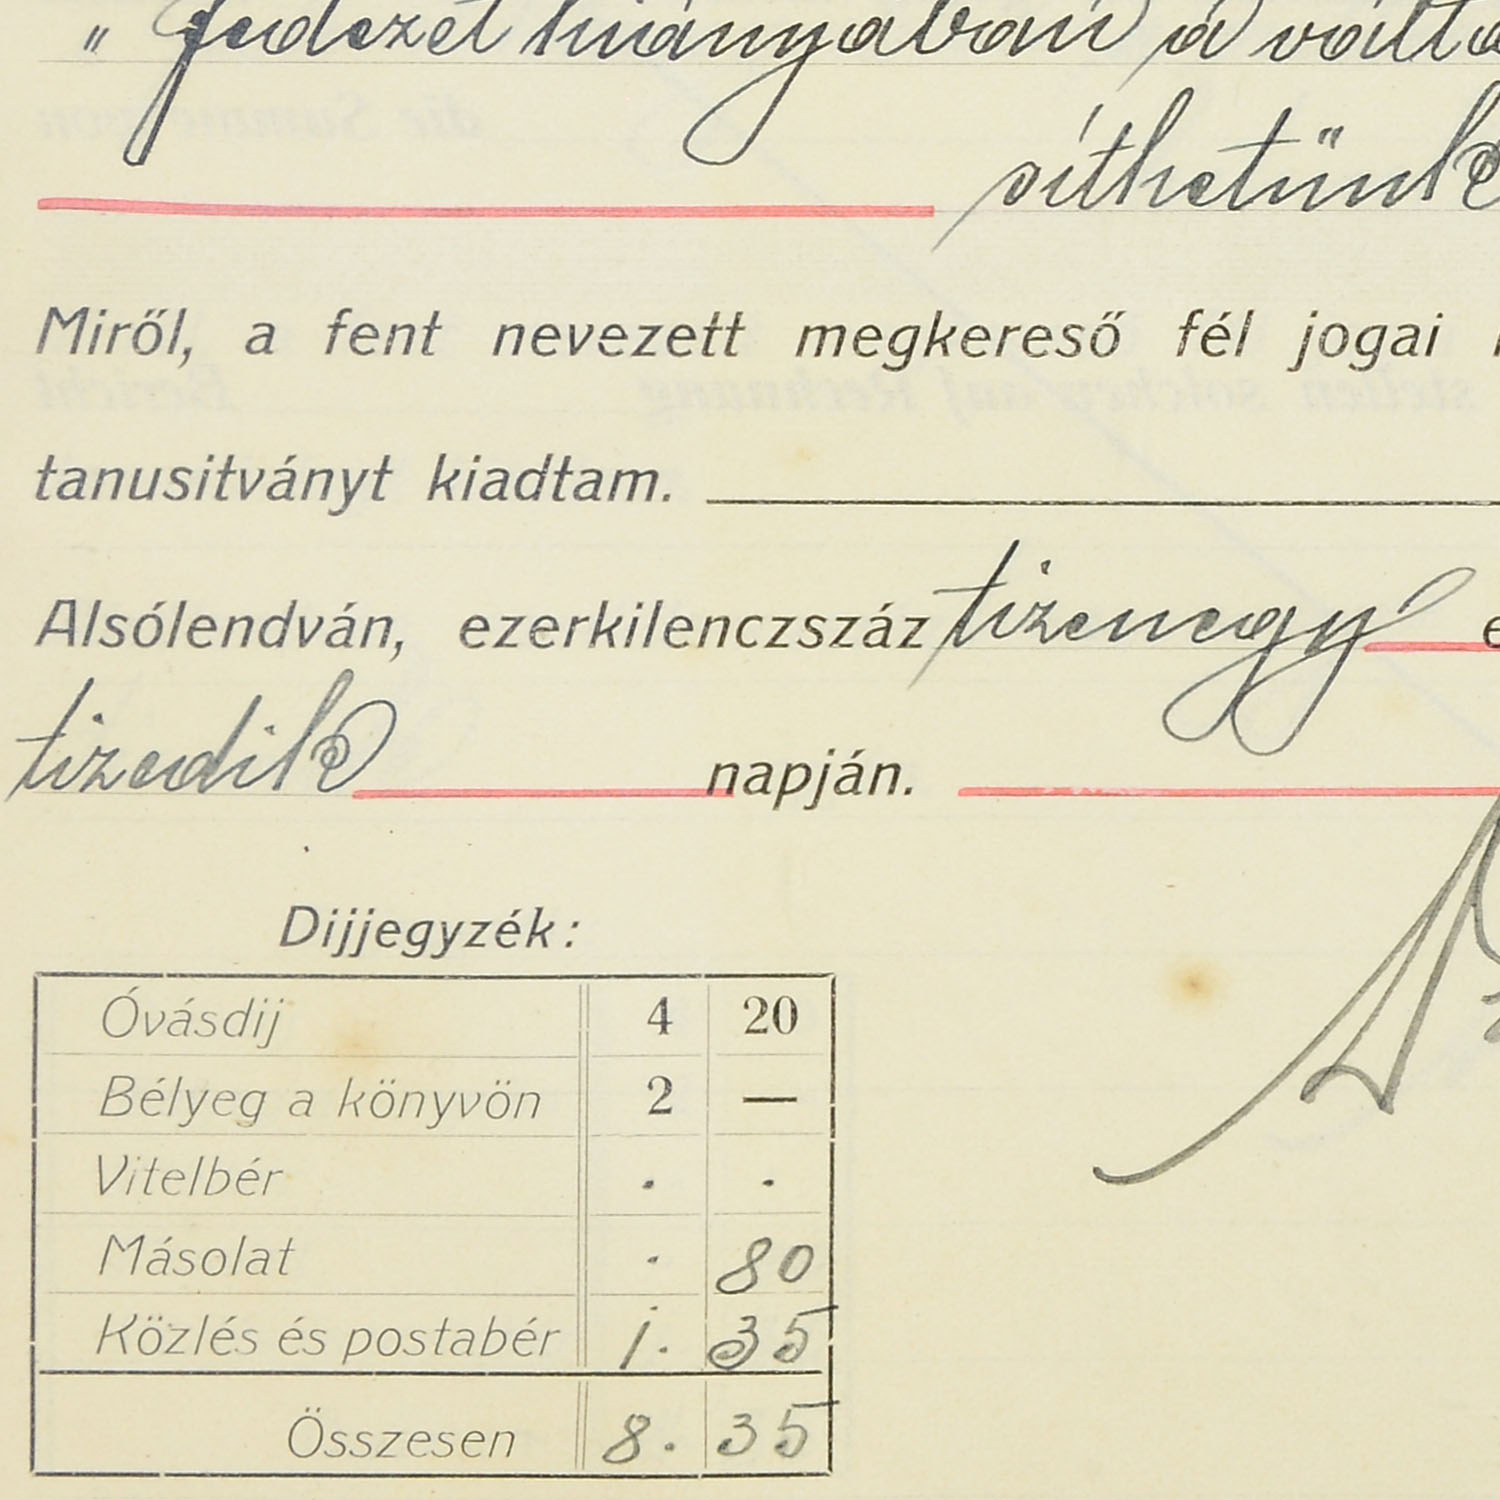 " fedezet hiányában a
síthetünk
Miről, a fent nevezett megkereső fél jogai
tanusitványt kiadtam.
Alsólendván, ezerkilenczszáz tizenegy
tizedik napján.
Dijjegyzék:
Óvásdij 4 20
Bélyeg a könyvön 2 —
Vitelbér . .
Másolat . 80
Közlés és postabér 1. 35
Összesen 8. 35